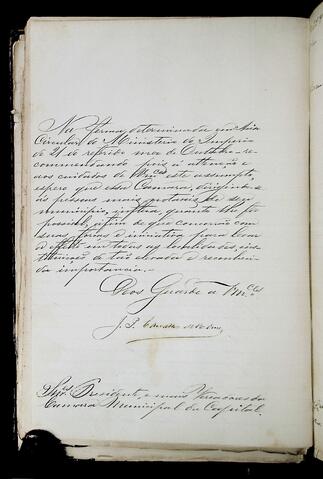 Na forma determinada em Aviso
Circular do Ministerio do Imperio
de 21 do referido mez de Outubro re-
commendando pois á attenção e
aos cuidados de Vm.ces este assumpto
espero que essa Camara, dirigindo-se
ás pessoas mais notaveis de seu
municipio, influa, quanto lhe for
possivel, afim de que concorrão com
suas forças e iniciativa para levar
a effeito em todas as localidades, ins-
tituições de tão elevada e reconheci-
da importancia.
Deos Guarde a Vm.ces
J. J.
Snr.es Presidente, e mais Vereadores da
Camara Municipal da Capital.